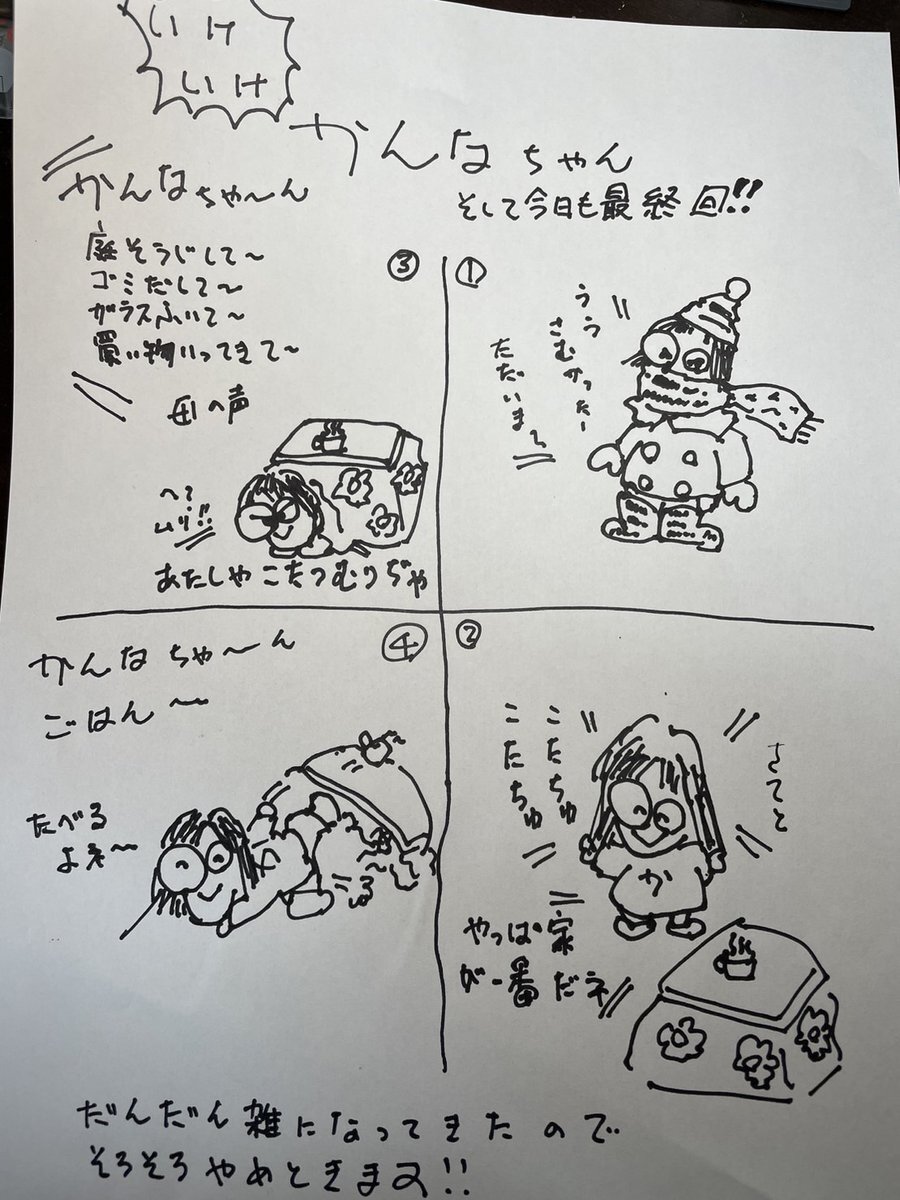 いけ
いけ
かんなちゃん
そして今日も最終回!!
①
うう
さむかったー
ただいま〜
②
さてと
こたちゅ
こたちゅ
か
やっぱ家
が一番だネ
③
かんなちゃ〜ん
庭そうじして〜
ゴミだして〜
ガラスふいて〜
買い物いってきて〜
母の声
へ?
ムリ!!
あたしゃこたつむりぢゃ
④
かんなちゃ〜ん
ごはん〜
たべる
よぉ〜
だんだん雑になってきたので
そろそろやめときます!!